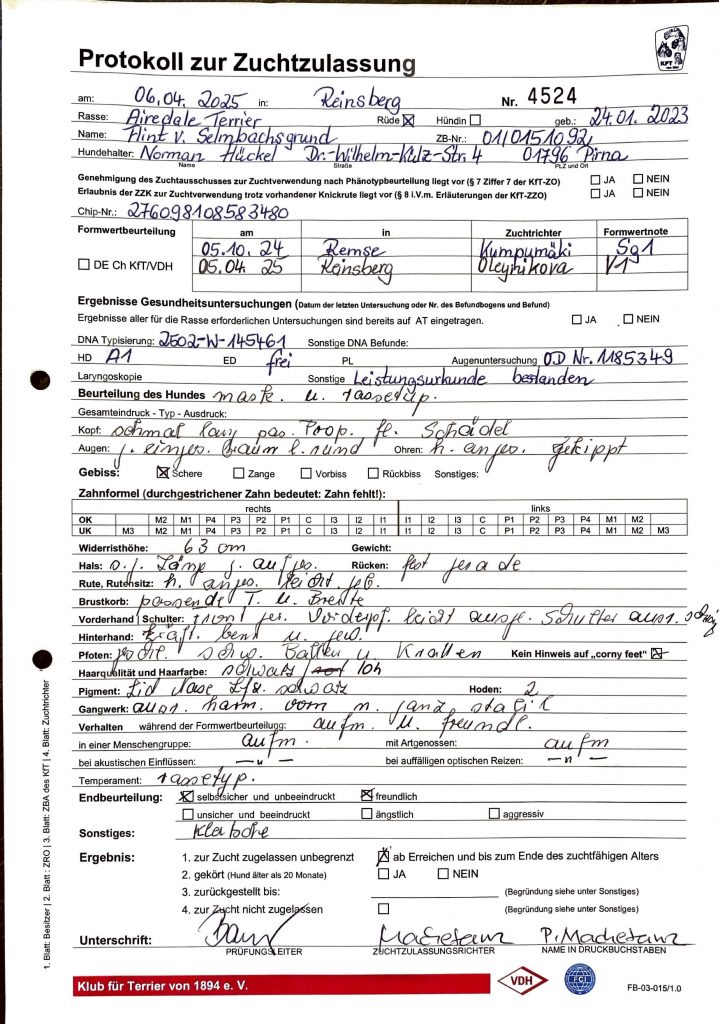 Protokoll zur Zuchtzulassung
KFT
am: 06.04. 2025 in: Reinsberg Nr. 4524
Rasse: Airedale Terrier Rüde ☒ Hündin ☐ geb.: 24.01. 2023
Name: Flint v. Selmbachsgrund ZB-Nr.: 01/0151092
Hundehalter: Norman Häckel Dr.-Wilhelm-Külz-Str. 4 01796 Pirna
Name Straße PLZ und Ort
Genehmigung des Zuchtausschusses zur Zuchtverwendung nach Phänotypbeurteilung liegt vor (§ 7 Ziffer 7 der KfT-ZO) ☐ JA ☐ NEIN
Erlaubnis der ZZK zur Zuchtverwendung trotz vorhandener Knickrute liegt vor (§ 8 i.V.m. Erläuterungen der KfT-ZZO) ☐ JA ☐ NEIN
Chip-Nr.: 276098108583480
Formwertbeurteilung am in Zuchtrichter Formwertnote
05.10. 24 Remse Kumpumäki Sg1
☐ DE Ch KfT/VDH 05.04. 25 Reinsberg Oleynikova V1
Ergebnisse Gesundheitsuntersuchungen (Datum der letzten Untersuchung oder Nr. des Befundbogens und Befund)
Ergebnisse aller für die Rasse erforderlichen Untersuchungen sind bereits auf AT eingetragen. ☐ JA ☐ NEIN
DNA Typisierung: 2502-W-145461 Sonstige DNA Befunde:
HD A1 ED frei PL Augenuntersuchung OD Nr. 1185349
Laryngoskopie Sonstige Leistungsurkunde bestanden
Beurteilung des Hundes mask. u. rassetyp.
Gesamteindruck - Typ - Ausdruck:
Kopf: schmal lang pas. Prop. fl. Schädel
Augen: g. einges. braun l. rund Ohren: h. anges. gekippt
Gebiss: ☒ Schere ☐ Zange ☐ Vorbiss ☐ Rückbiss Sonstiges:
Zahnformel (durchgestrichener Zahn bedeutet: Zahn fehlt!):
rechts links
OK M2 M1 P4 P3 P2 P1 C I3 I2 I1 I1 I2 I3 C P1 P2 P3 P4 M1 M2
UK M3 M2 M1 P4 P3 P2 P1 C I3 I2 I1 I1 I2 I3 C P1 P2 P3 P4 M1 M2 M3
Widerristhöhe: 63 cm Gewicht:
Hals: s. g. Länge g. aufges. Rücken: fest gerade
Rute, Rutensitz: h. anges. leicht geb.
Brustkorb: passende T. u. Breite
Vorderhand | Schulter: front ger. Vorderpf. leicht ausge. Schulter ausr. schräg
Hinterhand: kräft. bem u. gew.
Pfoten: Ballen u. Krallen Kein Hinweis auf „corny feet" ☒
Haarqualität und Haarfarbe: schwarz rot loh
Pigment: Lid Nase Lfz. schwarz Hoden: 2
Gangwerk: ausr. harm. vorn n. ganz stabil
Verhalten während der Formwertbeurteilung: aufm. u. freundl.
in einer Menschengruppe: aufm. mit Artgenossen: aufm
bei akustischen Einflüssen: — u — bei auffälligen optischen Reizen: — n —
Temperament: rassetyp.
Endbeurteilung: ☒ selbstsicher und unbeeindruckt ☒ freundlich
☐ unsicher und beeindruckt ☐ ängstlich ☐ aggressiv
Sonstiges: Klatsche
Ergebnis: 1. zur Zucht zugelassen unbegrenzt ☒ ab Erreichen und bis zum Ende des zuchtfähigen Alters
2. gekört (Hund älter als 20 Monate) ☐ JA ☐ NEIN
3. zurückgestellt bis: (Begründung siehe unter Sonstiges)
4. zur Zucht nicht zugelassen ☐ (Begründung siehe unter Sonstiges)
Unterschrift: Machetanz P. Machetanz
PRÜFUNGSLEITER ZUCHTZULASSUNGSRICHTER NAME IN DRUCKBUCHSTABEN
Klub für Terrier von 1894 e. V. VDH FCI FB-03-015/1.0
1. Blatt: Besitzer | 2. Blatt : ZRO | 3. Blatt: ZBA des KfT | 4. Blatt: Zuchtrichter